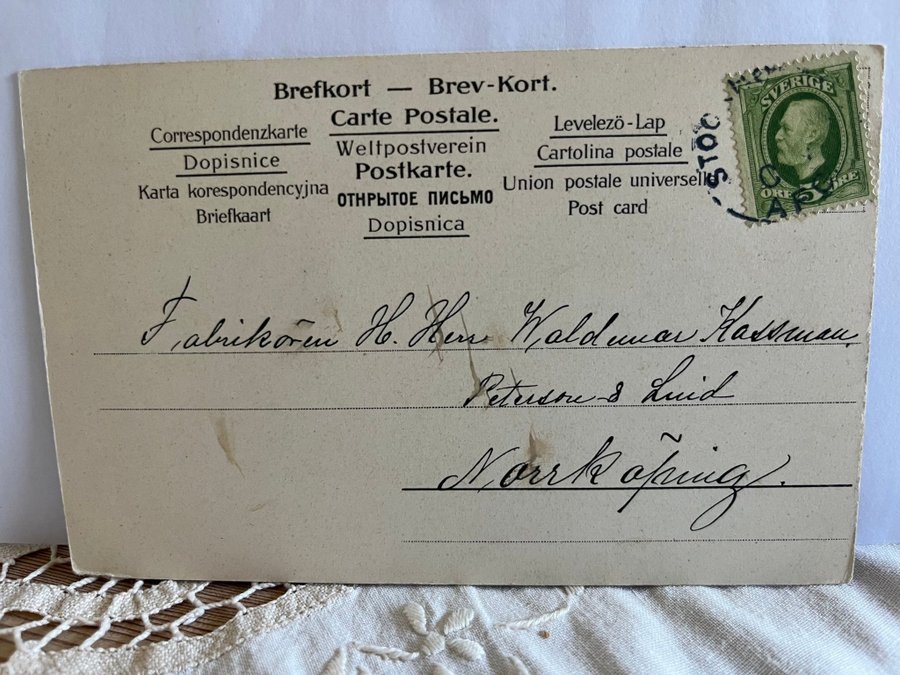 Brefkort — Brev-Kort.
Carte Postale.
Weltpostverein
Postkarte.
ОТКРЫТОЕ ПИСЬМО
Dopisnica
Correspondenzkarte
Dopisnice
Karta korespondencyjna
Briefkaart
Levelező-Lap
Cartolina postale
Union postale universelle
Post card
SVERIGE
ÖRE 5 ÖRE
STOC
Fabrikören H. Herr Waldemar Kassman.
Peterson & Lund
Norrköping.